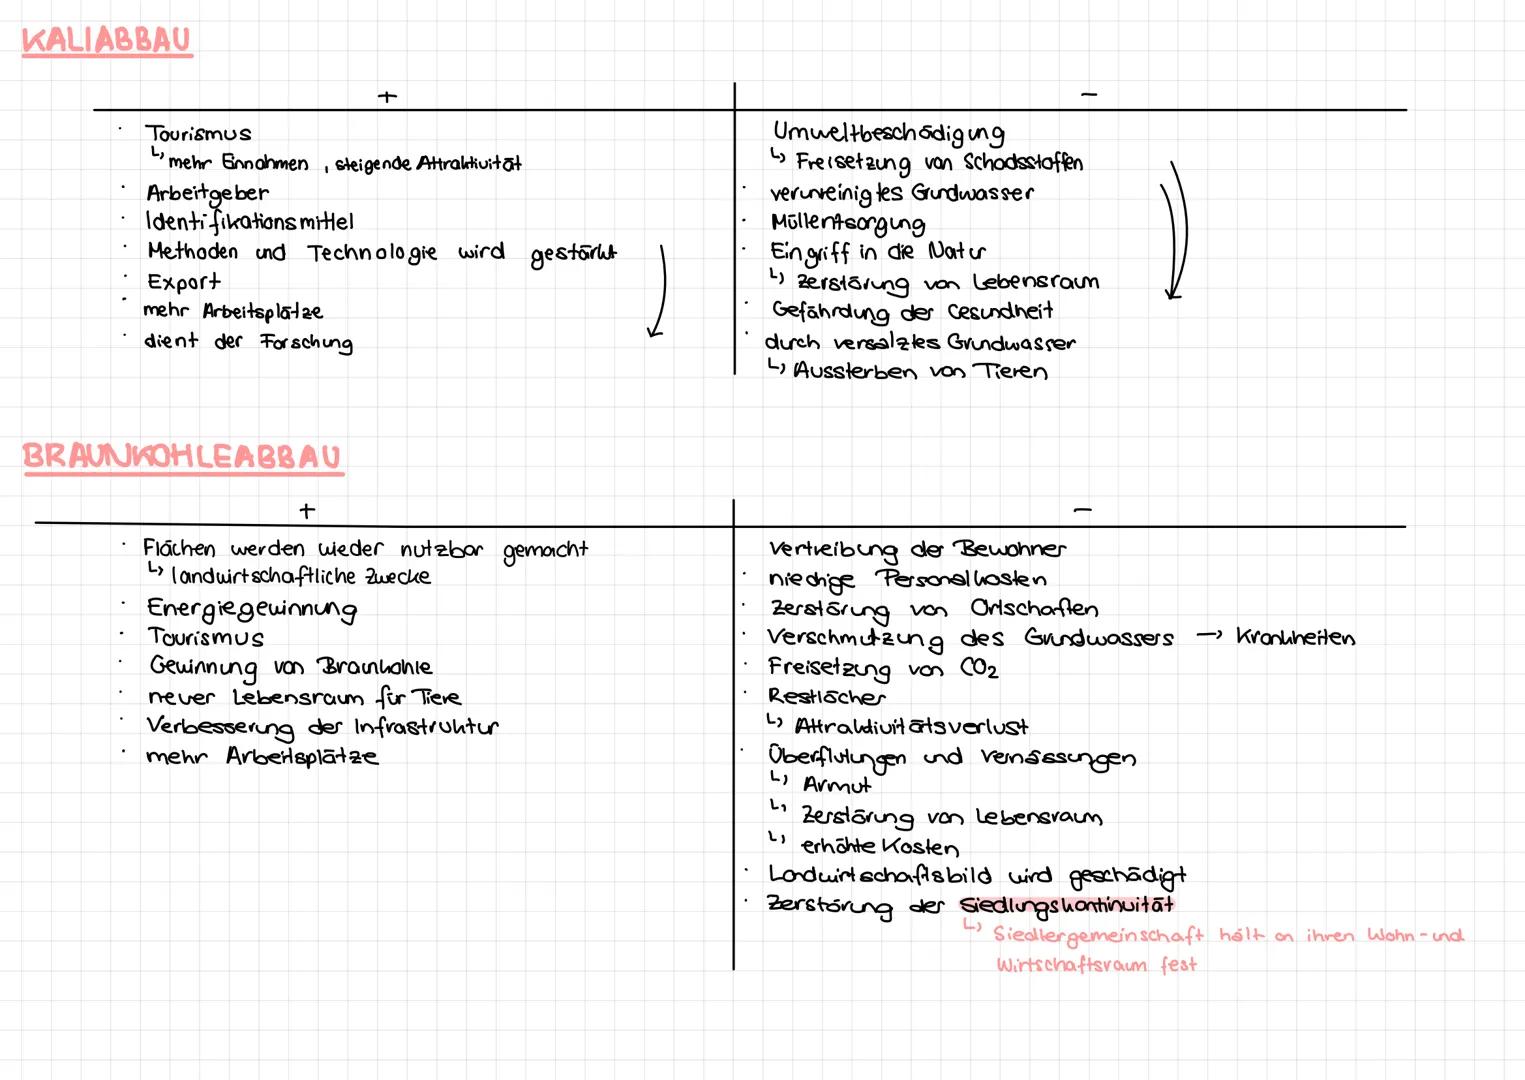 KALIABBAU
+ -
· Tourismus
↳ mehr Einnahmen, steigende Attraktivität
· Arbeitgeber
· Identifikationsmittel
· Methoden und Technologie wird gestärkt
· Export
· mehr Arbeitsplätze
· dient der Forschung
Umweltbeschädigung
↳ Freisetzung von Schadsstoffen
· verunreinigtes Grundwasser
· Müllentsorgung
· Eingriff in die Natur
↳ Zerstörung von Lebensraum
· Gefährdung der Gesundheit
· durch versalztes Grundwasser
↳ Aussterben von Tieren
BRAUNKOHLEABBAU
+ -
· Flächen werden wieder nutzbar gemacht
↳ landwirtschaftliche Zwecke
· Energiegewinnung
· Tourismus
· Gewinnung von Braunkohle
· neuer Lebensraum für Tiere
· Verbesserung der Infrastruktur
· mehr Arbeitsplätze
Vertreibung der Bewohner
· niedrige Personalkosten
· Zerstörung von Ortschaften
· Verschmutzung des Grundwassers → Krankheiten
· Freisetzung von CO₂
· Restlöcher
↳ Attraktivitätsverlust
· Überflutungen und Vernässungen
↳ Armut
↳ Zerstörung von Lebensraum
↳ erhöhte Kosten
· Landwirtschaftsbild wird geschädigt
· Zerstörung der Siedlungskontinuität
↳ Siedlergemeinschaft hält an ihren Wohn- und
Wirtschaftsraum fest